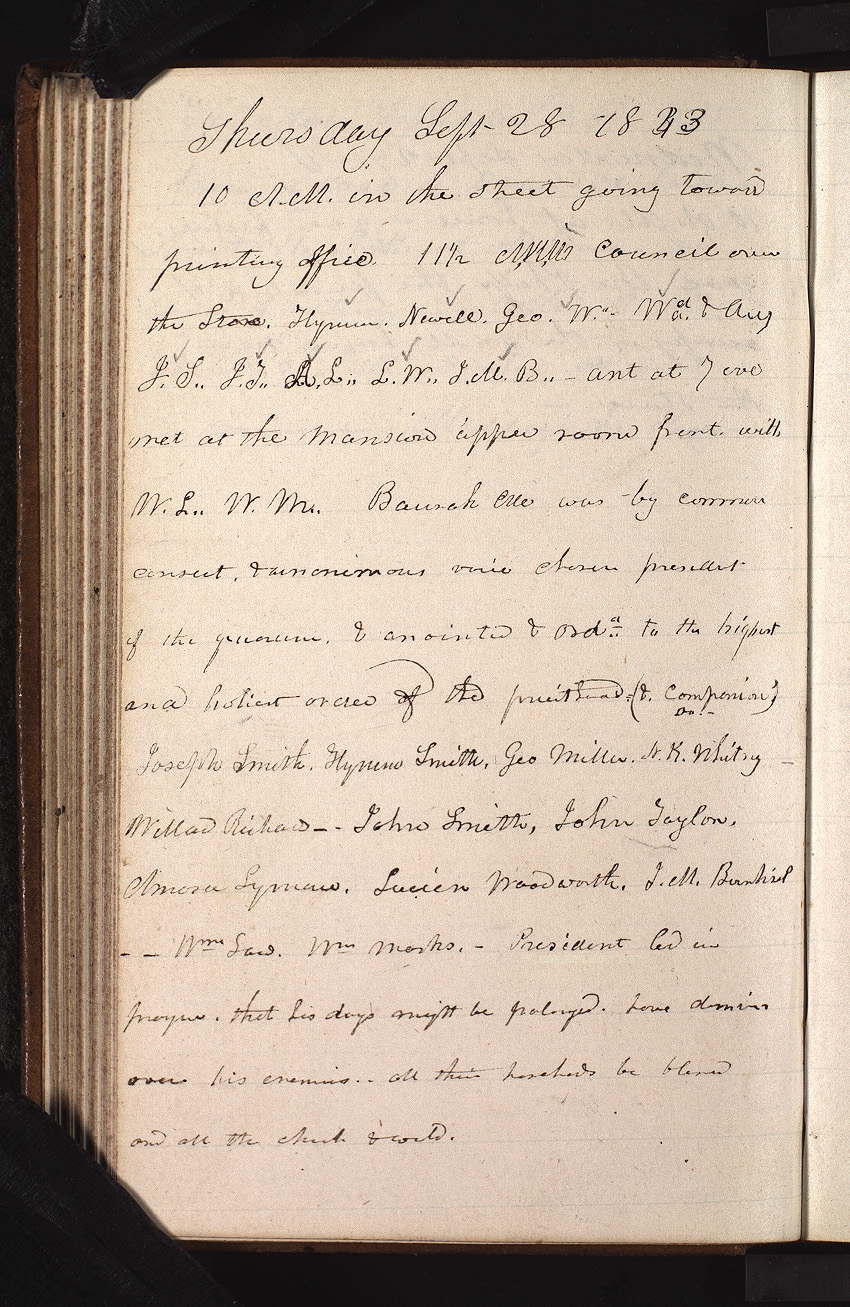 Thursday Sept 28 1843
10 A.M. in the street going toward
printing office. 11 1/2 A.M. Council over
the Store. Hyrum. Newell. Geo. Wm. Wd. &
J. S.. J. T.. A. L.. L. W.. J. M. B.. - ant at 7 eve
met at the Mansion upper room front. with
W. L.. W. M. Baurak Ale was by common
consent, & unanimous voice chosen president
of the quorum. & anointed & ord. to the highest
and holiest order of the priesthood. (& Companion)
Joseph Smith. Hyrum Smith. Geo Miller. N. K. Whitny -
Willard Richards - - John Smith, John Taylor,
Amasa Lyman, Lucien Woodworth. J. M. Bernhisel
- - Wm Law. Wm Marks. - President led in
prayer. that his days might be prolonged. have dominion
over his enemies.. all their households be blessed
and all the church & world.